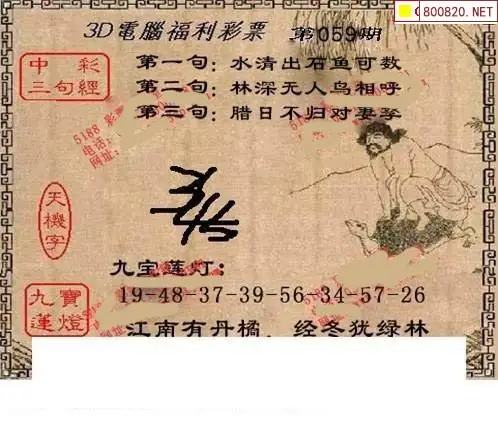 800820.NET
3D電腦福利彩票 第059期
中彩
三句經
第一句：水清出石鱼可数
第二句：林深无人鸟相呼
第三句：腊日不归对妻孥
5188
电话：
网址：
天機字
九宝莲灯：
19-48-37-39-56 34-57-26
九寶
蓮燈
江南有丹橘，经冬犹绿林